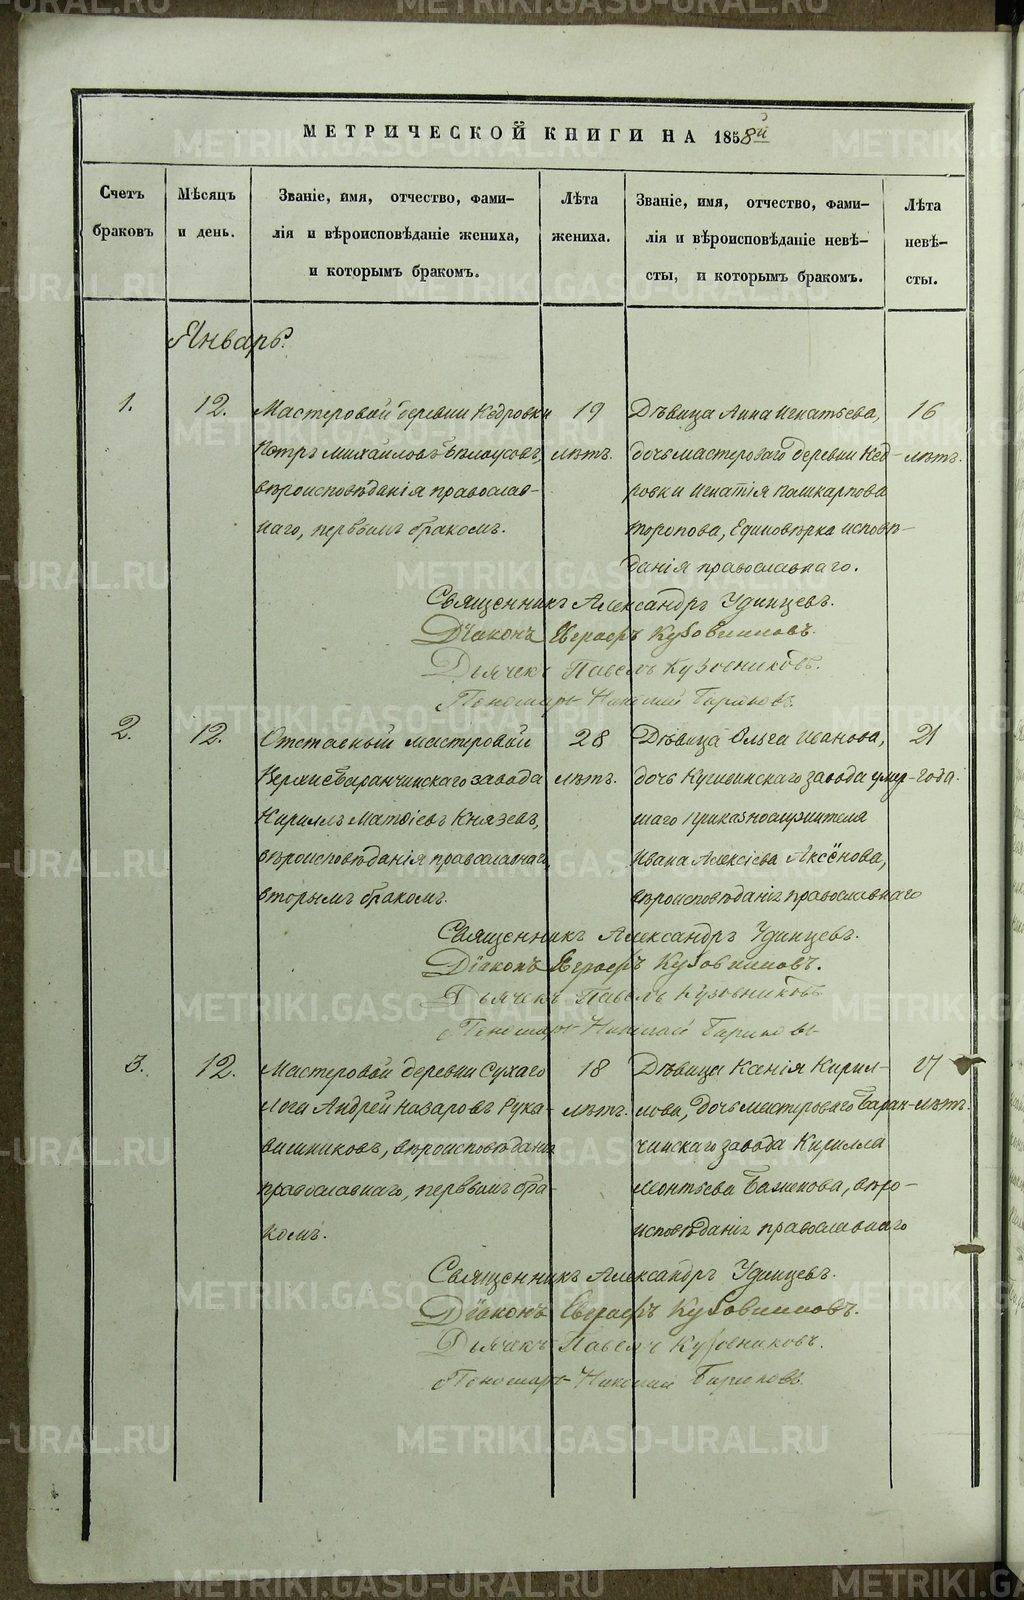 МЕТРИЧЕСКОЙ КНИГИ НА 1858й
Счетъ браковъ
Мѣсяцъ и день.
Званіе, имя, отчество, фами-
лія и вѣроисповѣданіе жениха,
и которымъ бракомъ.
Лѣта жениха.
Званіе, имя, отчество, фами-
лія и вѣроисповѣданіе невѣ-
сты, и которымъ бракомъ.
Лѣта невѣ-
сты.
Январь.
1. 12.
Мастеровой деревни Кедровки
Петръ Михайловъ Бѣлоусовъ,
вѣроисповѣданія православ-
наго, первымъ бракомъ.
19
лѣтъ.
Дѣвица Анна Игнатьева,
дочь мастероваго деревни Кед-
ровки Игнатія
Торопова, Единовѣрка исповѣ-
данія православнаго.
16
лѣтъ.
Священникъ Александръ Удинцевъ.
Діаконъ
Дьячекъ Павелъ Кузовниковъ.
Пономарь Николай
2. 12.
Отставный мастеровой
Верхнебаранчинскаго завода
Кириллъ Матѳіевъ Князевъ,
вѣроисповѣданія православнаго,
вторымъ бракомъ.
28
лѣтъ.
Дѣвица Ольга Иванова,
дочь Кушвинскаго завода умер-
шаго приказнослужителя
Ивана Алексіева Аксёнова,
вѣроисповѣданія православнаго
21
года.
Священникъ Александръ Удинцевъ.
Діаконъ
Дьячекъ Павелъ Кузовниковъ
Пономарь Николай
3. 12.
Мастеровой деревни Сухаго
Лога Андрей Назаровъ Рука-
вишниковъ, вѣроисповѣданія
православнаго, первымъ бра-
комъ.
18
лѣтъ.
Дѣвица Ксенія Кирил-
лова, дочь мастероваго Баран-
чинскаго завода Кирилла
Монтьева Баженова, вѣро-
исповѣданія православнаго
17
лѣтъ.
Священникъ Александръ Удинцевъ.
Діаконъ
Дьячекъ Павелъ Кузовниковъ.
Пономарь Николай
METRIKI.GASO-URAL.RU